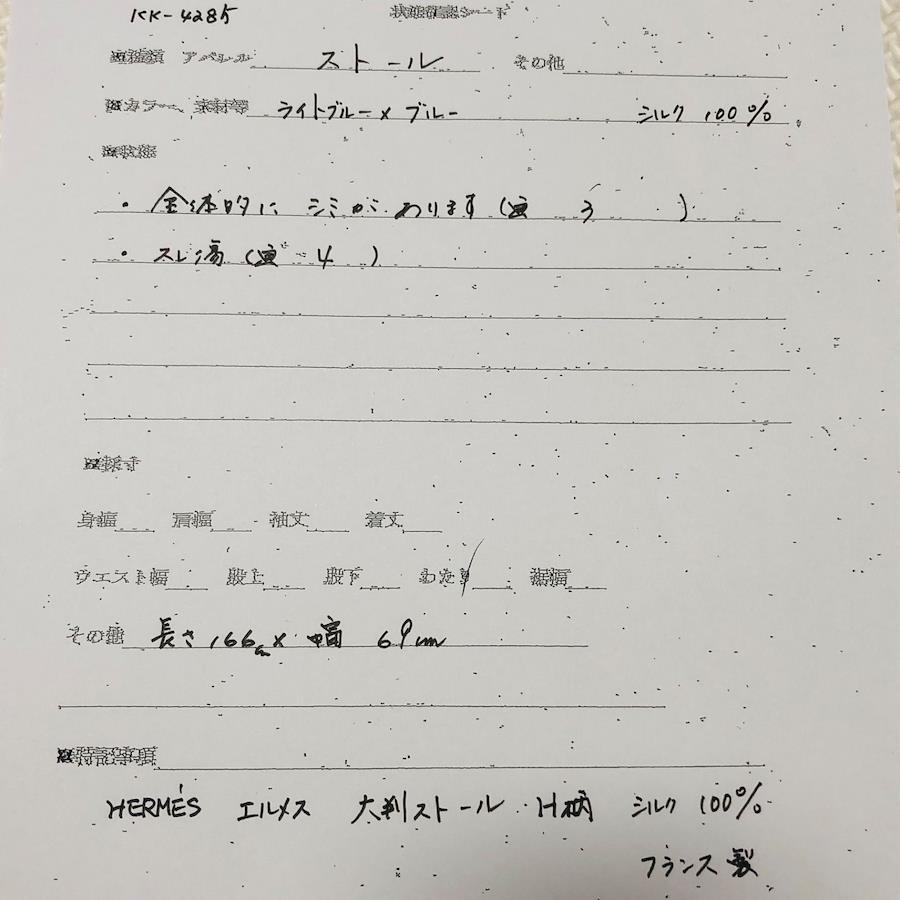 KK-4285
状態確認シート
※種類 アパレル ストール その他
※カラー、素材等 ライトブルー×ブルー シルク 100%
※状態
・全体的に シミが あります(画 3 )
・スレ傷(画 4 )
※採寸
身幅 肩幅 袖丈 着丈
ウエスト幅 股上 股下 わたり 裾幅
その他 長さ166cm× 幅 69cm
※特記事項
HERMÉS エルメス 大判ストール H柄 シルク 100%
フランス製